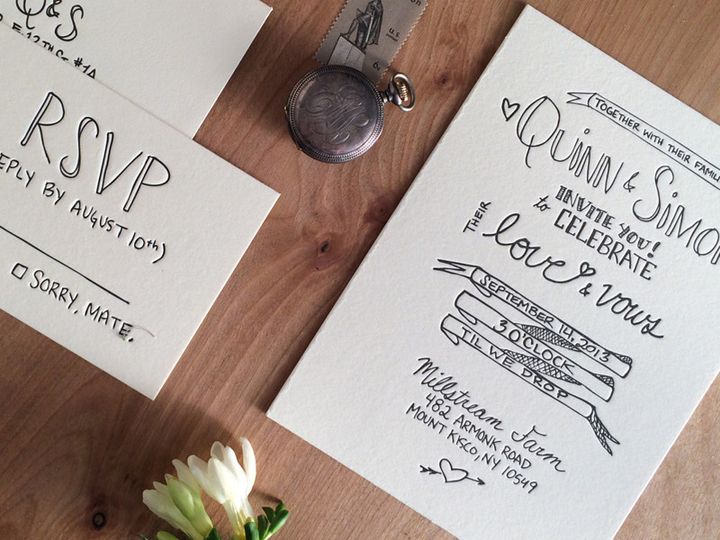 Q & S
E. 12th St. #1A
RSVP
REPLY BY AUGUST 10th)
SORRY, MATE.
U.S.
6c
TOGETHER WITH THEIR FAMILI
QUINN & SIMO
INVITE YOU!
to CELEBRATE
THEIR love & vows
SEPTEMBER 14, 2013
3 O'CLOCK
'TIL WE DROP
Millstream Farm
482 ARMONK ROAD
MOUNT KISCO, NY 10549